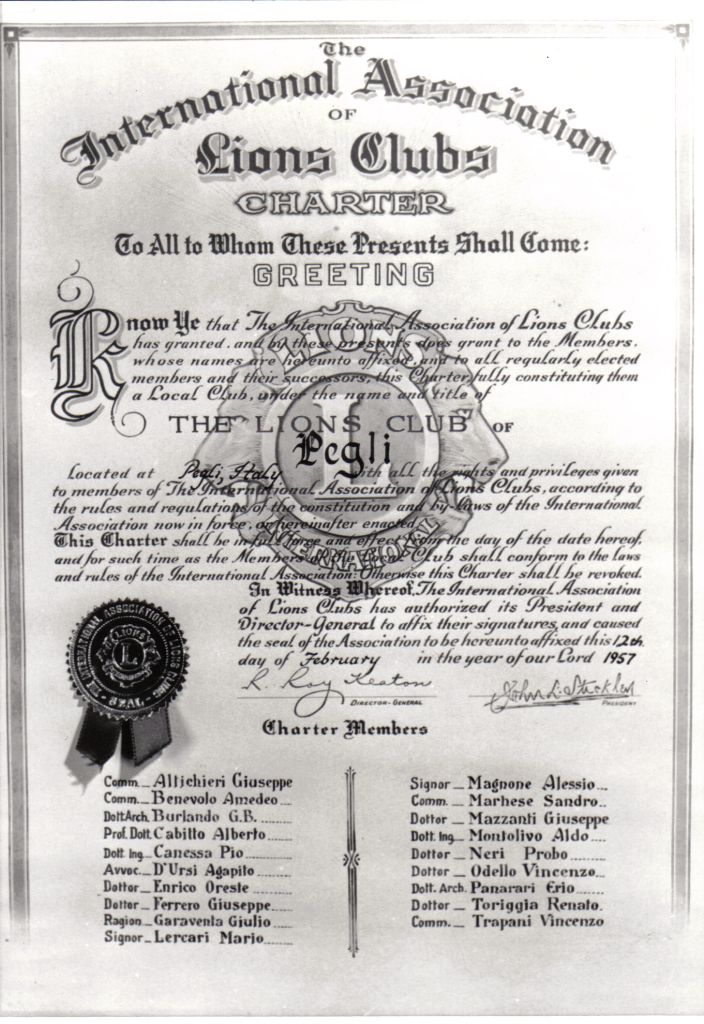 The
International Association
OF
Lions Clubs
CHARTER
To All to Whom These Presents Shall Come:
GREETING
Know Ye that The International Association of Lions Clubs
has granted, and by these presents does grant to the Members,
whose names are hereunto affixed, and to all regularly elected
members and their successors, this Charter, fully constituting them
a Local Club, under the name and title of
THE LIONS CLUB OF
Pegli
Located at Pegli, Italy with all the rights and privileges given
to members of The International Association of Lions Clubs, according to
the rules and regulations of the constitution and by-laws of the International
Association now in force, or hereinafter enacted.
This Charter shall be in full force and effect from the day of the date hereof,
and for such time as the Members of the Local Club shall conform to the laws
and rules of the International Association: Otherwise this Charter shall be revoked.
In Witness Whereof, The International Association
of Lions Clubs has authorized its President and
Director-General to affix their signatures, and caused
the seal of the Association to be hereunto affixed this 12th
day of February in the year of our Lord 1957
R. Roy Keaton
DIRECTOR-GENERAL
John L. Stickley
PRESIDENT
LIONS
L
INTERNATIONAL
THE INTERNATIONAL ASSOCIATION OF LIONS CLUBS
LIONS
L
SEAL
Charter Members
Comm. Altichieri Giuseppe
Comm. Benevolo Amedeo
Dott.Arch. Burlando G.B.
Prof. Dott. Cabitto Alberto
Dott. Ing. Canessa Pio
Avvoc. D'Ursi Agapito
Dottor Enrico Oreste
Dottor Ferrero Giuseppe
Ragion Garaventa Giulio
Signor Lercari Mario
Signor Magnone Alessio
Comm. Marhese Sandro
Dottor Mazzanti Giuseppe
Dott. Ing. Montolivo Aldo
Dottor Neri Probo
Dottor Odello Vincenzo
Dott. Arch. Panarari Erio
Dottor Toriggia Renato
Comm. Trapani Vincenzo